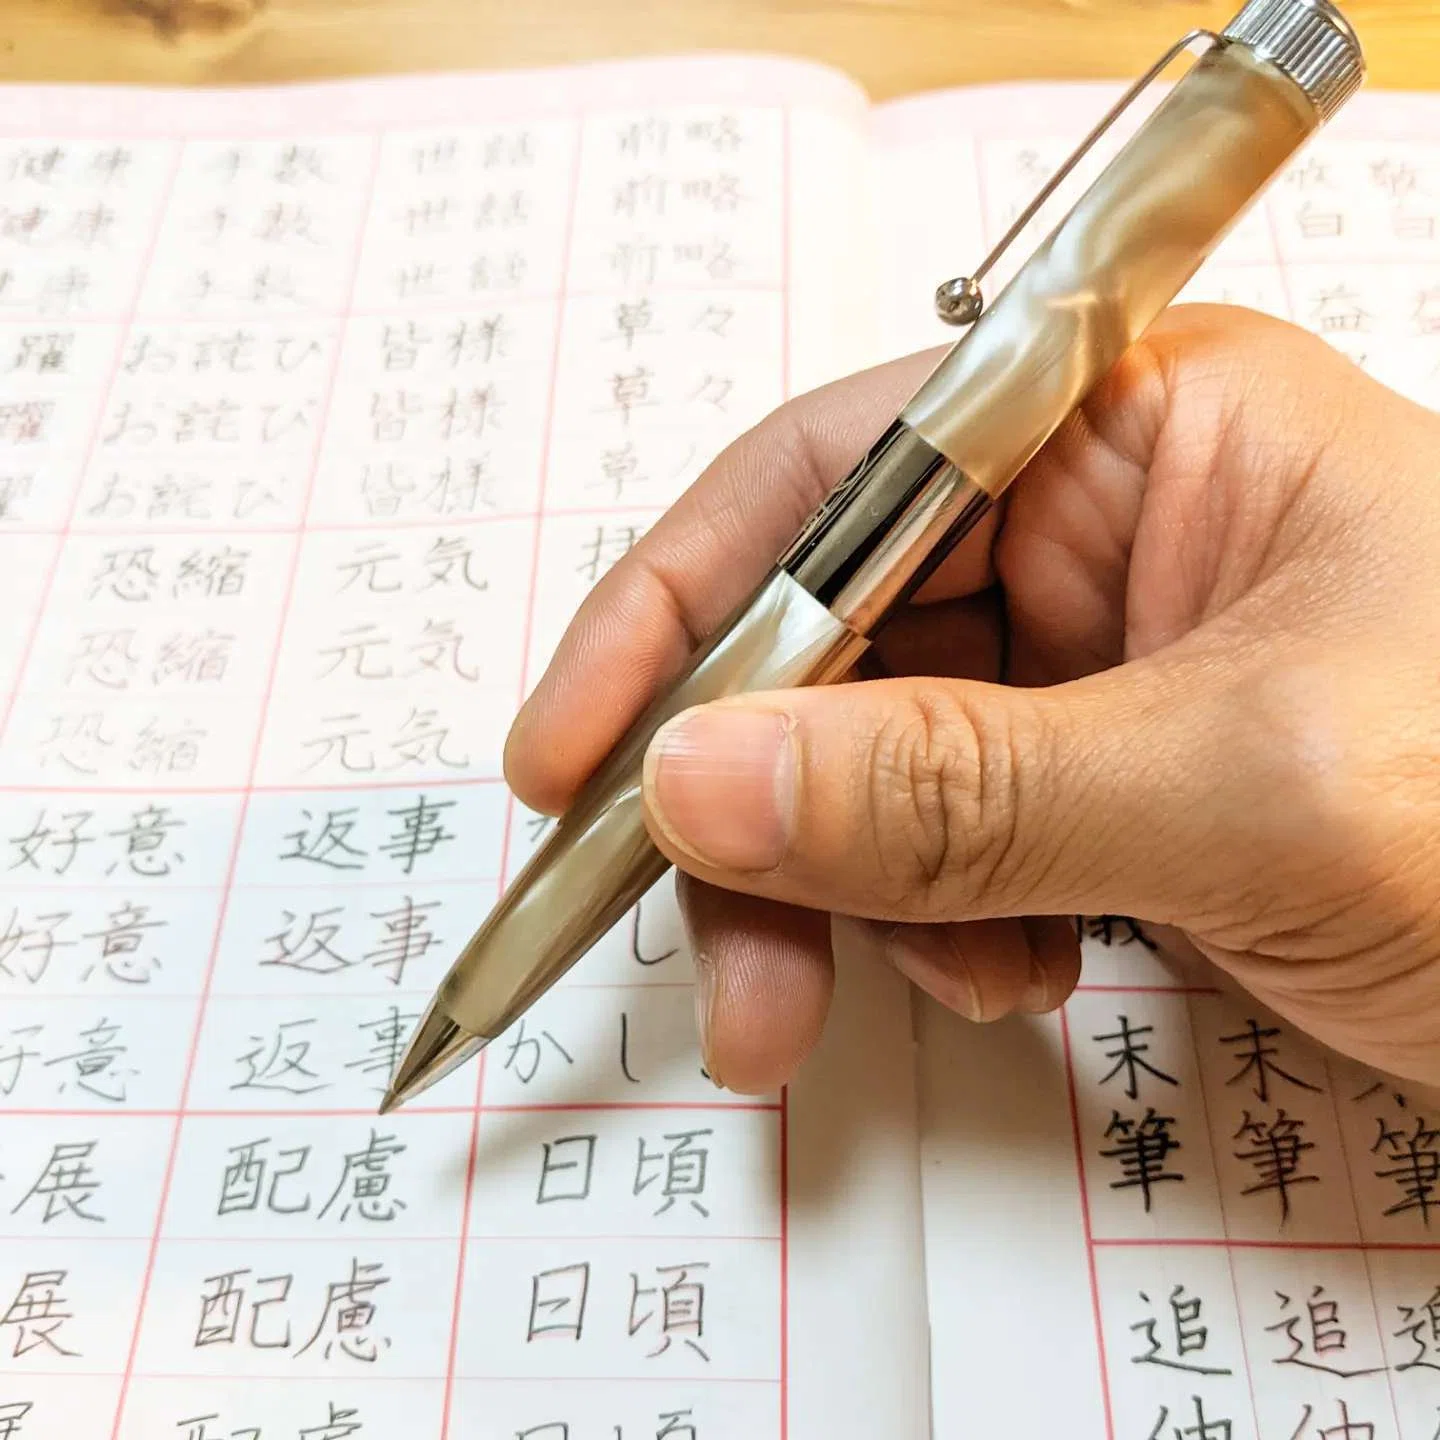 健康 手数 世話 前略
健康 手数 世話 前略
手数 世話 前略
躍 お詫び 皆様 草々
躍 お詫び 皆様 草々
お詫び 皆様 草
恐縮 元気
恐縮 元気
恐縮 元気
好意 返事
好意 返事 し
好意 返事 かし
展 配慮 日頃
展 配慮 日頃
展 配慮 日頃
敬
白 白
益
末筆 末筆
筆
追伸 追伸
追